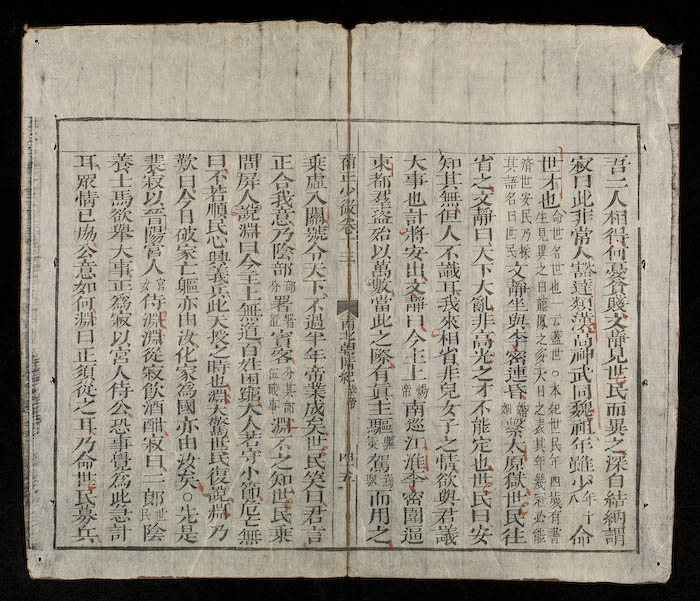 吾二人相得何憂貧賤文靜見世民而異之深自結納謂
寂曰此非常人豁達類漢高神武同魏祖年雖少年十八命
世才也命世名世也一云蓋世○本紀世民年四歲有書生見異之曰龍鳳之姿天日之表其年幾冠必能
濟世安民乃採其語名曰世民文靜坐與李密連昏婚繫太原獄世民往
省之文靜曰天下大亂非高光之才不能定也世民曰安
知其無但人不識耳我來相省非兒女子之情欲與君議
大事也計將安出文靜曰今主上煬帝南巡江淮李密圍逼
東都羣盜殆以萬數當此之際有真主驅駕而用之
少微卷十三 南北朝隋紀恭帝 四五
乘虛入關號令天下不過半年帝業成矣世民笑曰君言
正合我意乃陰部署賓客淵不之知世民乘
間屏人說淵曰今主上無道百姓困窮大人若守小節危亡無
曰不若順民心興義兵此天授之時也淵大驚世民復說淵乃
歎曰今日破家亡軀亦由汝化家為國亦由汝矣○先是
裴寂以晉陽宮人侍淵淵從寂飲酒酣寂曰二郎世民陰
養士馬欲舉大事正為寂以宮人侍公恐事覺為此急計
耳眾情已協公意如何淵曰正須從之耳乃命世民募兵